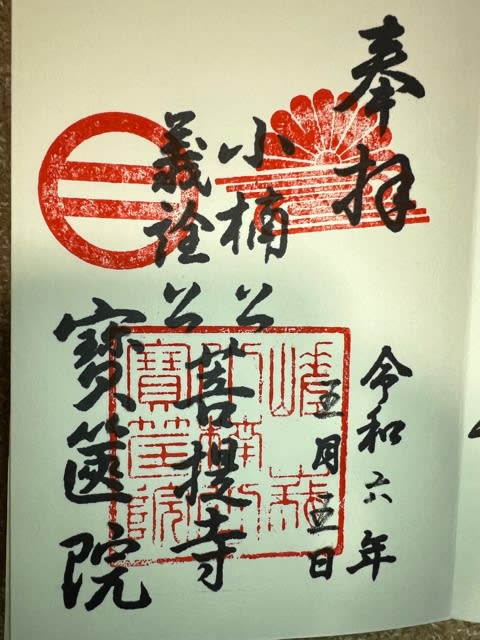 奉拝
令和六年
五月五日
小楠公
義詮公
菩提寺
寶篋院